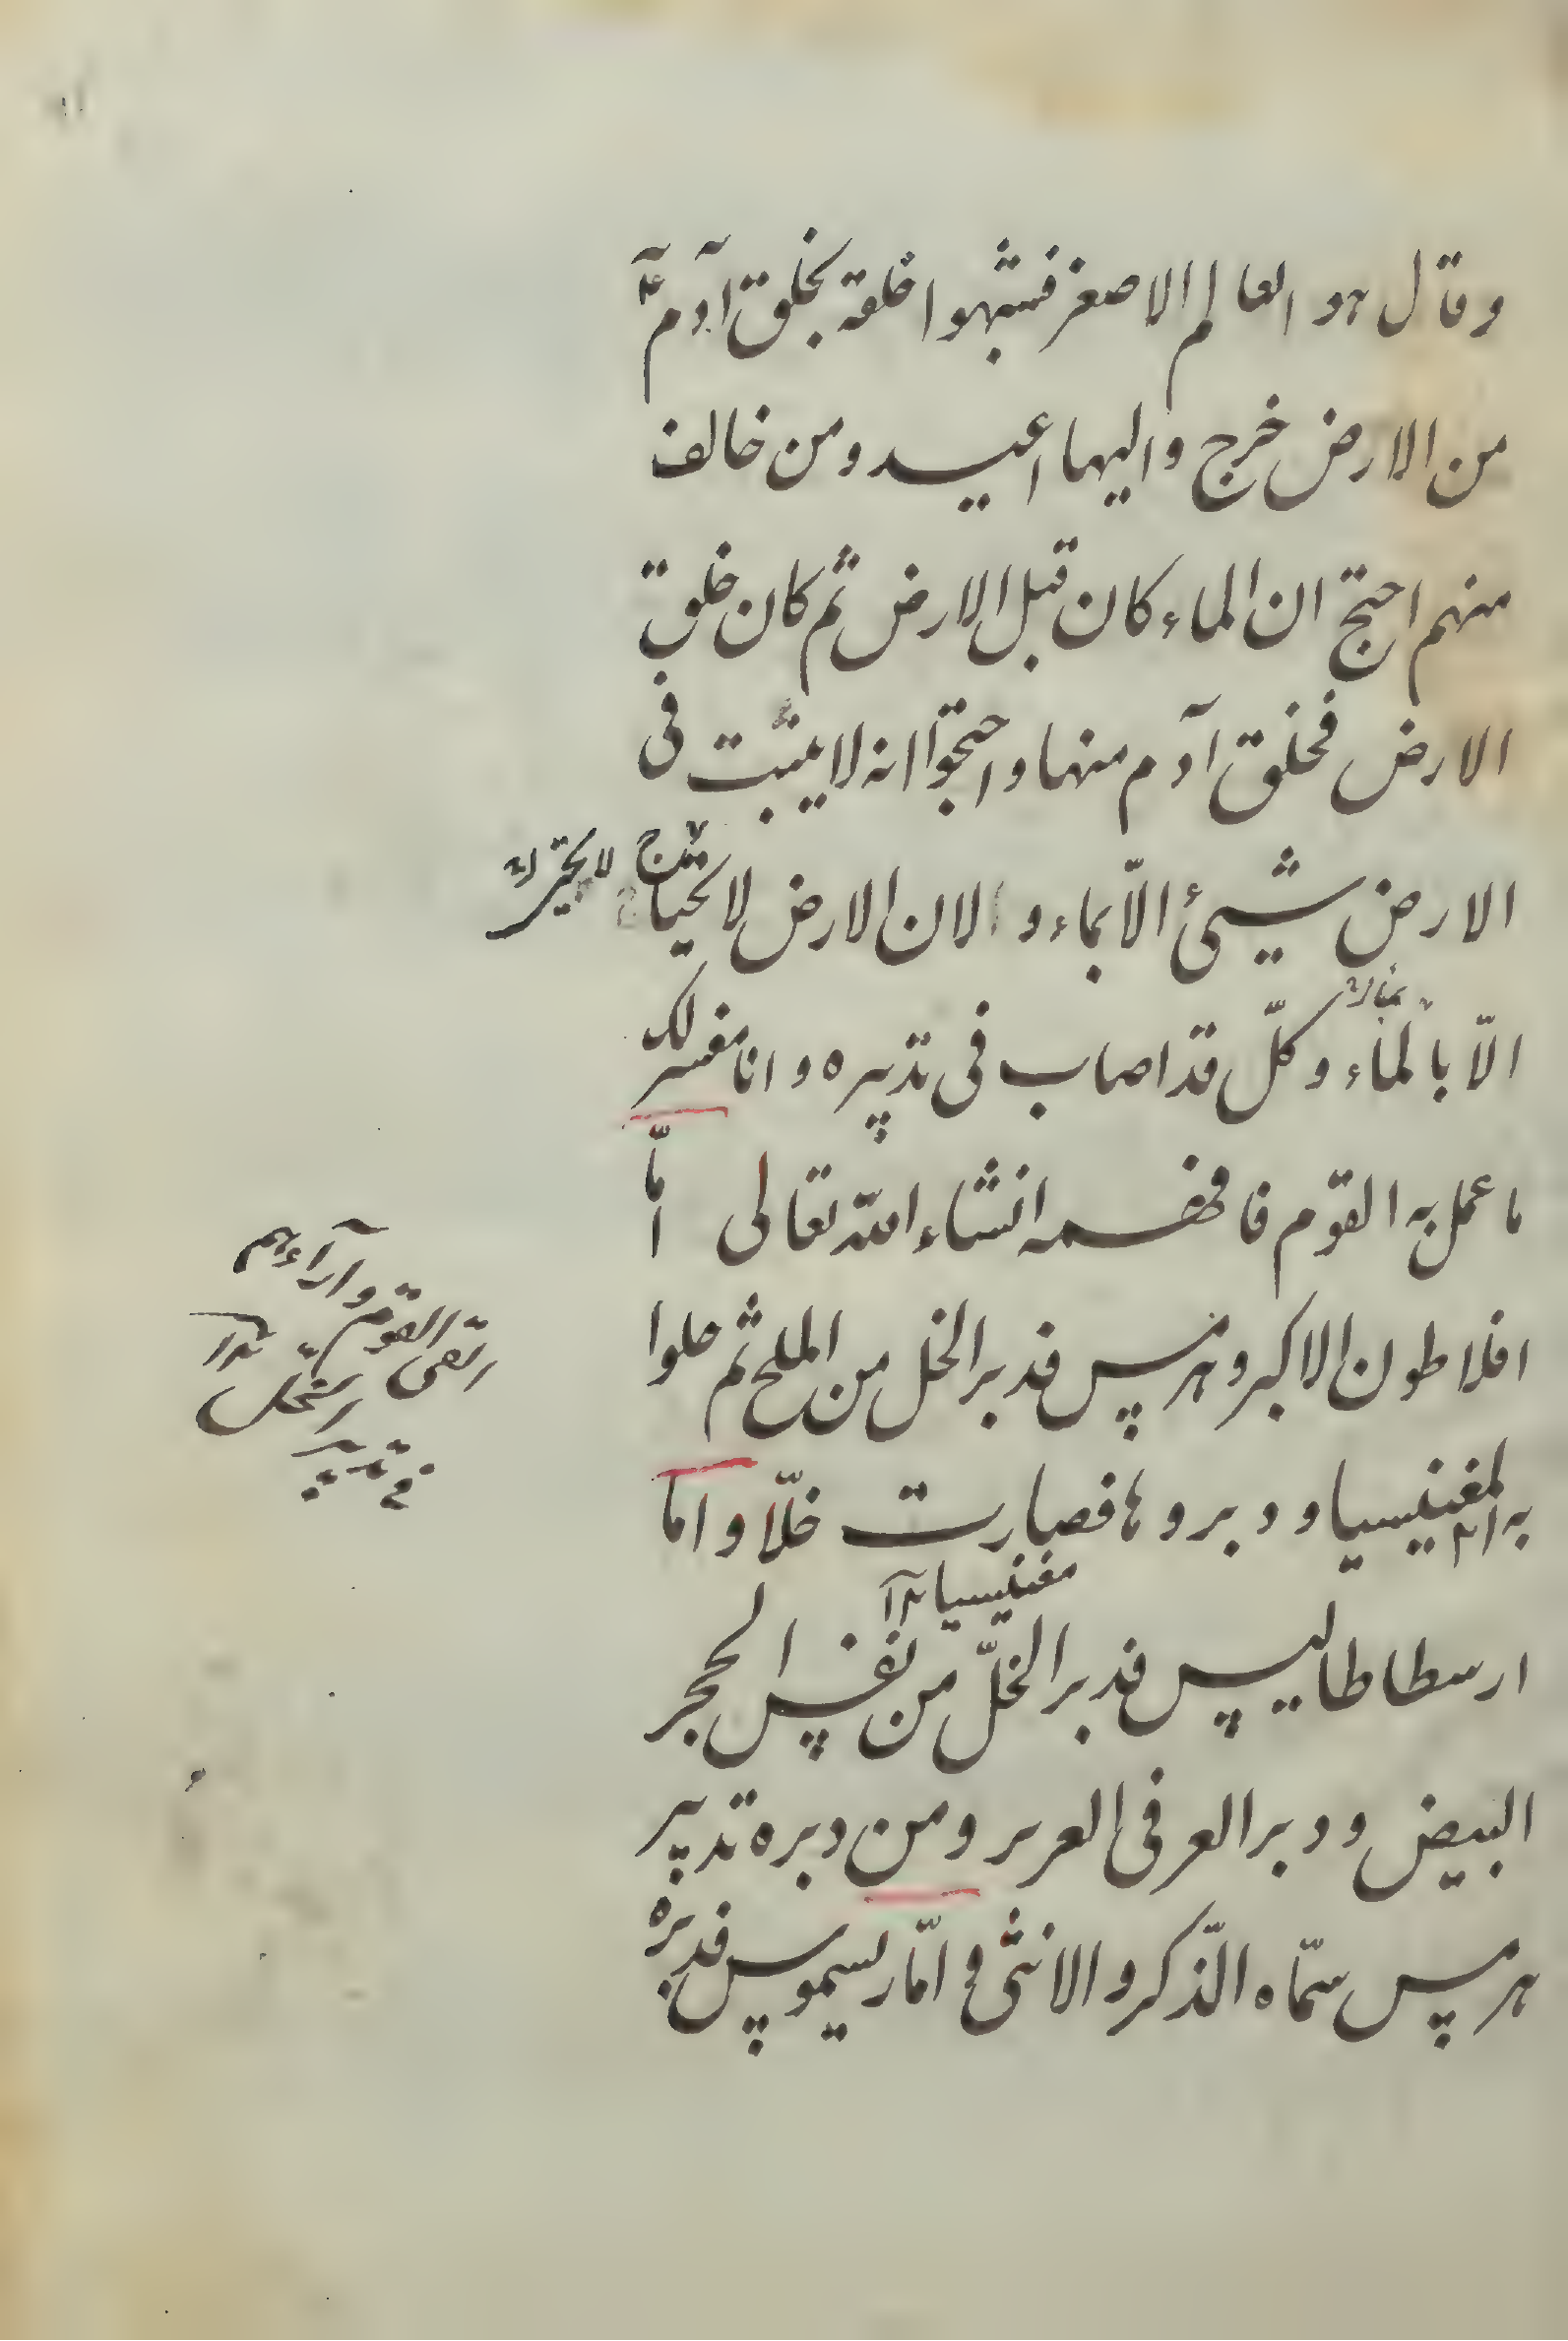 وقال هو العالم الاصغر فشبهوا خلقه بخلق آدم ع
من الارض خرج واليها اعيد ومن خالف
منهم احتج ان الماء كان قبل الارض ثم كان خلق
الارض فخلق آدم منها واحتجوا انه لا ينبت فى
الارض شيئ الّا بماء والان الارض لا تحتاج
الّا بالماء وكلّ قد اصاب فى تدبيره وانا مفسر لك
ما عمل به القوم فافهمه انشاء الله تعالى امّا
افلاطون الاكبر وهرمس فدبر الخل من الملح ثم حلوا
به المغنيسيا ودبروها فصارت خلّا واما
ارسطاطاليس فدبر الخلّ من نفس الحجر
البيض ودبر العرفى العرىر ومن دبره تدبير
هرمس سمّاه الذّكر والانثى امّا ريسموس فدبره
لا يتحرك
مغنيسيا
القوم وآراءهم
فى تدبير